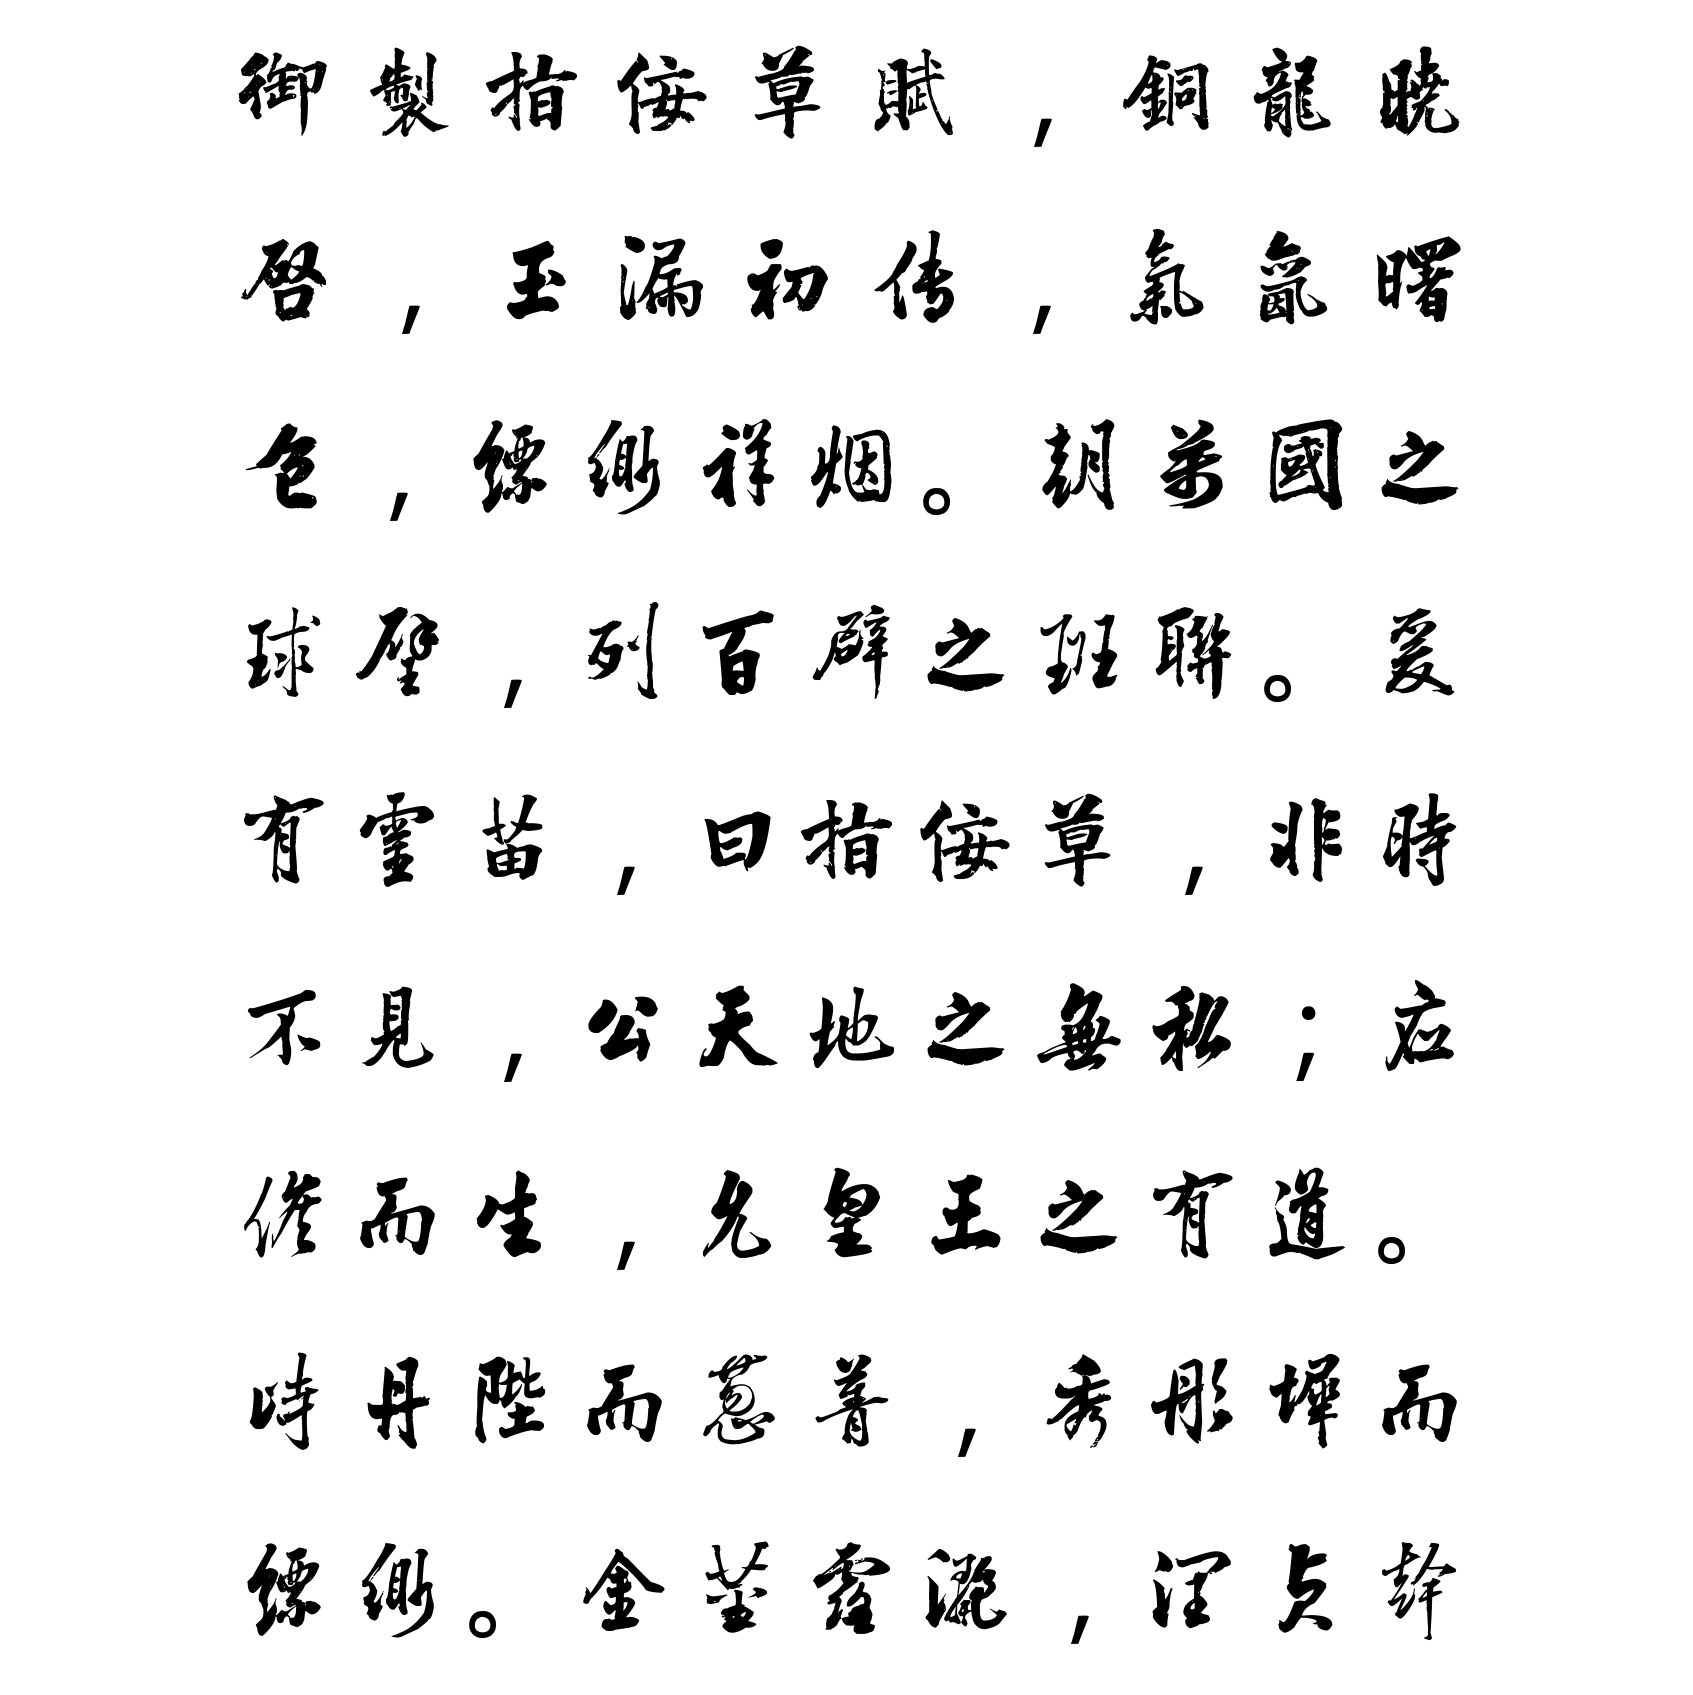 御製指佞草賦，銅龍曉
启，玉漏初传，氣氤曙
色，缥缈祥烟。朝萬國之
球璧，列百辟之班聯。爰
有靈苗，曰指佞草，非時
不見，公天地之無私；应
候而生，允皇王之有道。
峙丹陛而葱菁，秀彤墀而
缥缈。金茎露灑，润贞幹